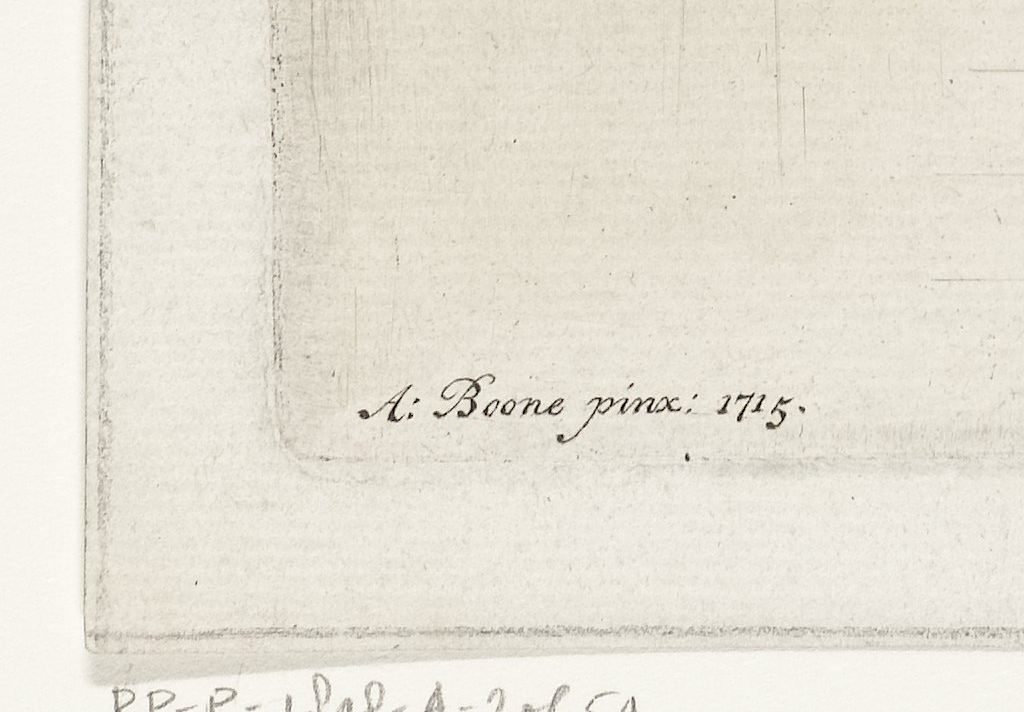 A: Boone pinx: 1715.